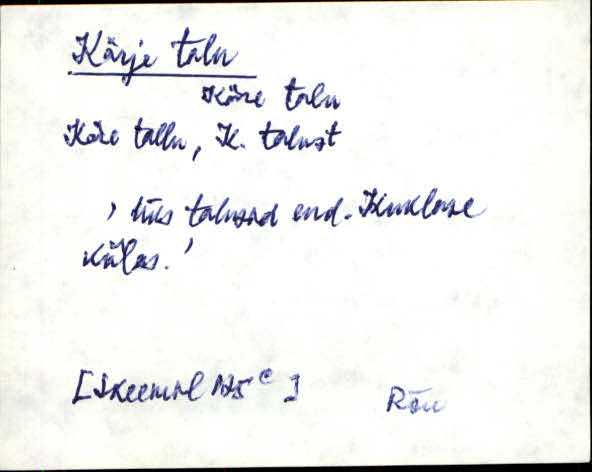 Kärje talu
Käre talu
Käre tallu, K. talust
, üks talusid end. Kuuklase
külas.'
[Skeemil 125 c]
Rõu